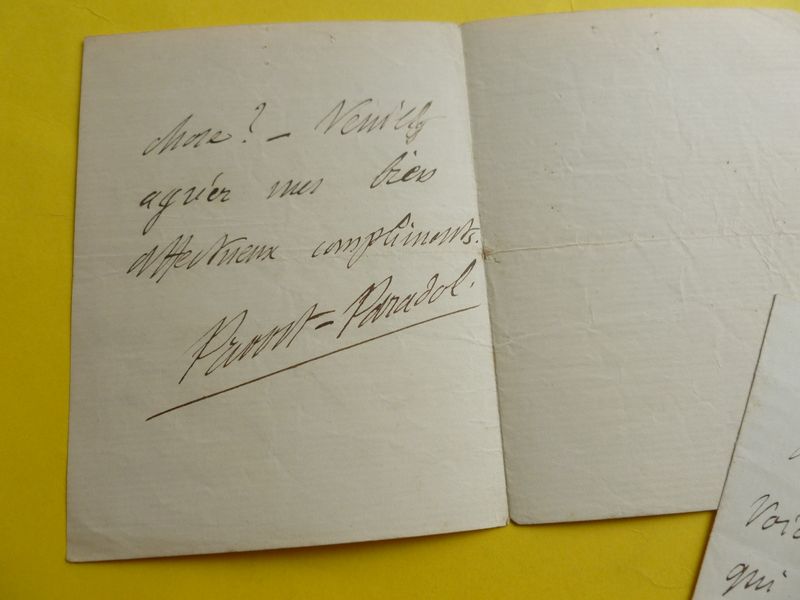 chose? — Veuillez
agréer mes bien
affectueux compliments.
Prevost-Paradol.
Voici
qui